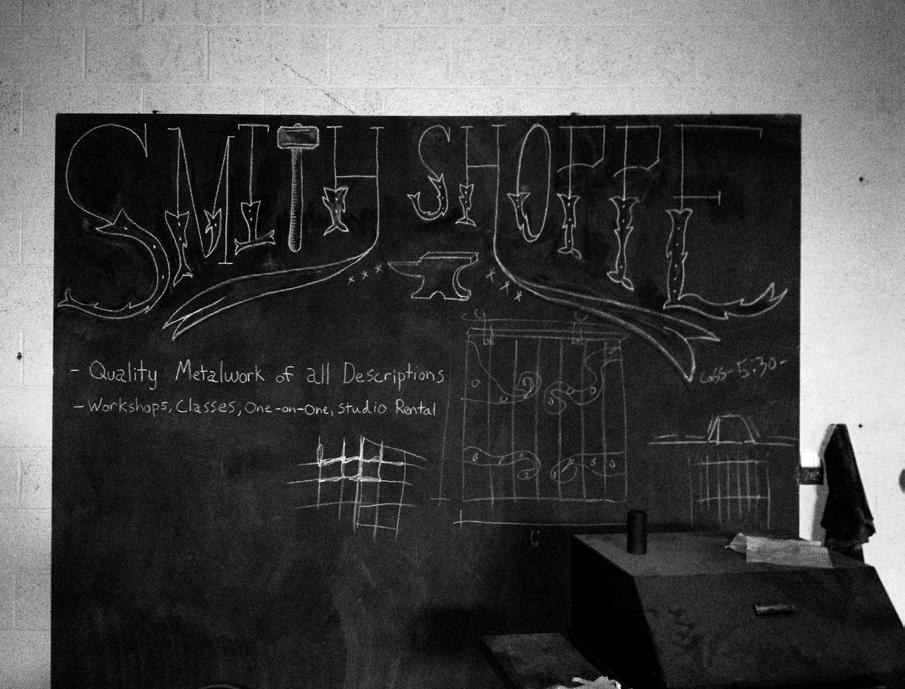 SMITH SHOPPE
- Quality Metalwork of all Descriptions
- Workshops, Classes, One-on-One, Studio Rental
5:30-